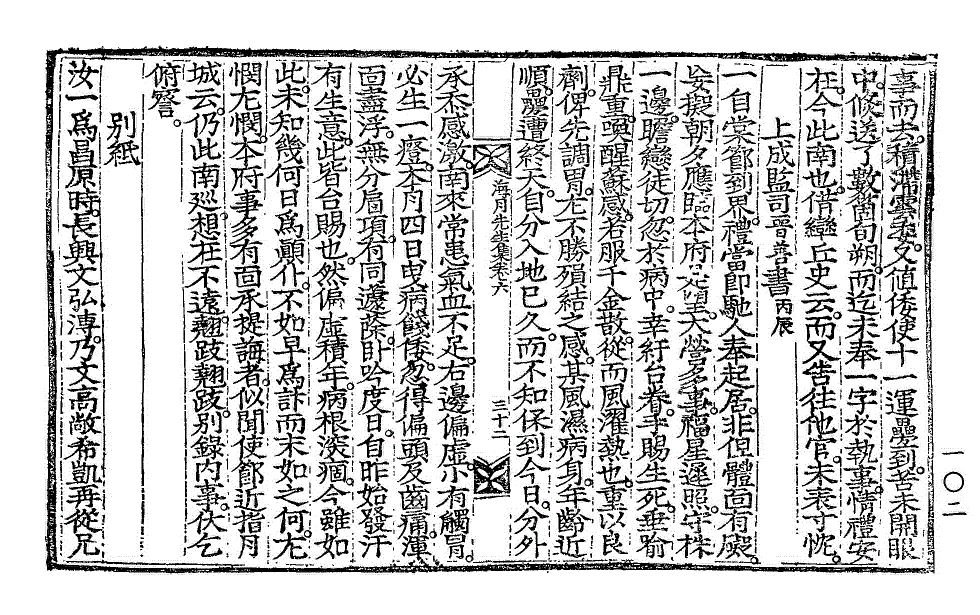 事而去。積滯雲委。又値倭使十一運疊到。苦未開眼
中。修送了數箇旬朔。而迄未奉一字於執事。情禮安
在。今此南也。借巒丘史云。而又告往他官。未表寸忱。
上成監司晉善書 丙辰
一自棠節到界。禮當卽馳人奉起居。非但體面有嚴
妥擬朝夕應臨本府。大營多事。福星遲照。守株
一邊。瞻戀徒切。忽於病中。幸紆台眷。手賜生死。垂喩
鼎重。喚醒蘇感。若服千金散。從而風濯熱也。重以良
劑。俾先調胃。尤不勝殞結之感。某風濕病身。年齡近
順。疊遭終天。自分入地已久。而不知保到今日。分外
海月先生集卷六 三十二
承杰感激。南來常患氣血不足。右邊偏虛。小有觸冒。
必生一癋。本月四日曳病餞倭。忽得偏頭及齒痛。渾
面盡浮。無分肩項。有同邊蒢。卧吟度日。自昨始發汗
有生意。此皆台賜也。然偏虛積年。病根深痼。今雖如
此。未知幾何日爲顚仆。不如早爲計而末如之何。尤
憫尤憫。本府事多有面承提誨者。似聞使節近指月
城云。仍此南巡。想在不遠。翹跂翹跂。別錄內事。伏乞
俯詧。
別紙
汝一爲昌原時。長興文弘溥。乃文高敞希凱再從兄
一〇二